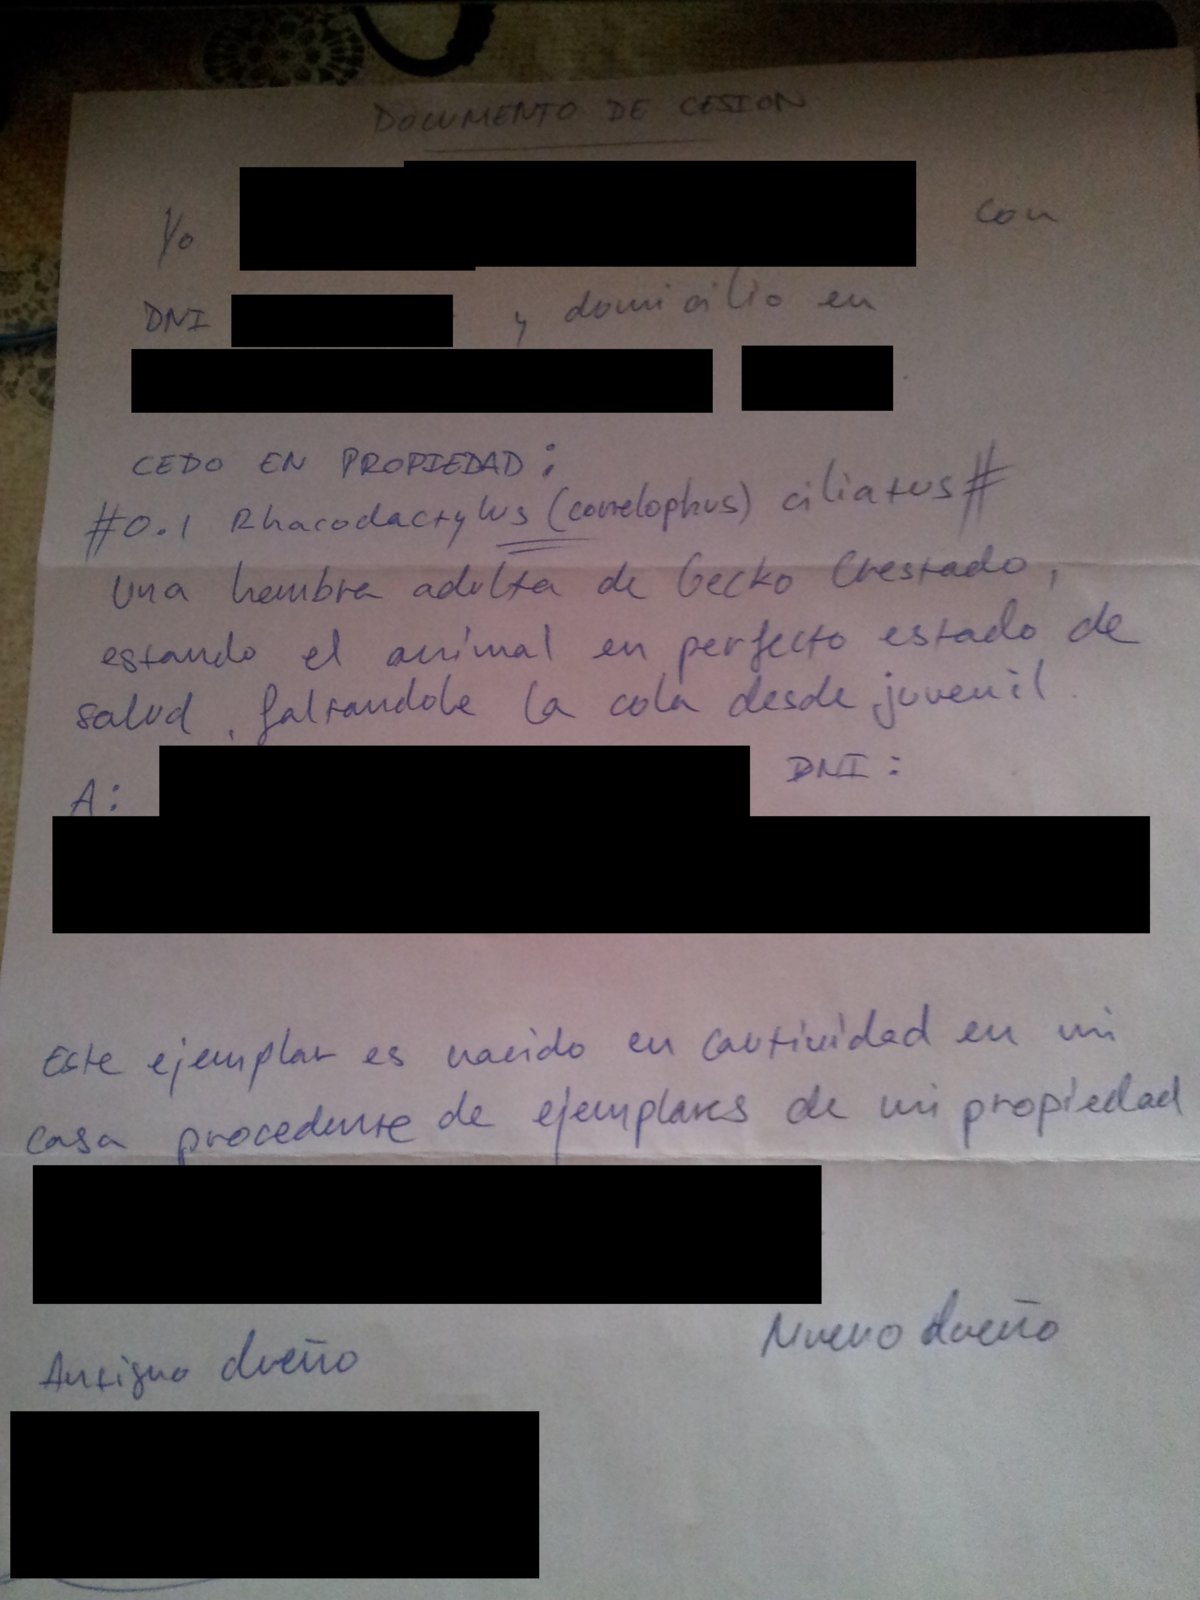 DOCUMENTO DE CESION
Yo con
DNI y domicilio en
CEDO EN PROPIEDAD:
#0.1 Rhacodactylus (correlophus) ciliatus#
Una hembra adulta de Gecko Crestado,
estando el animal en perfecto estado de
salud, faltandole la cola desde juvenil.
A: DNI:
Este ejemplar es nacido en cautividad en mi
casa procedente de ejemplares de mi propiedad
Nuevo dueño
Antiguo dueño